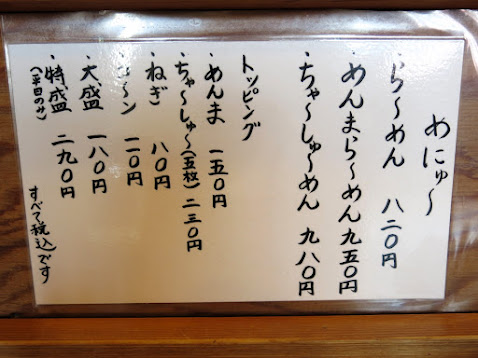 めにゅ〜
・ら〜めん 八二〇円
めんまら〜めん 九五〇円
・ちゃ〜しゅ〜めん 九八〇円
トッピング
・めんま 一五〇円
ちゃ〜しゅ〜(五枚) 二三〇円
・ねぎ 八〇円
・コーン 一一〇円
・大盛 一八〇円
・特盛 二九〇円
(平日のみ)
すべて税込です